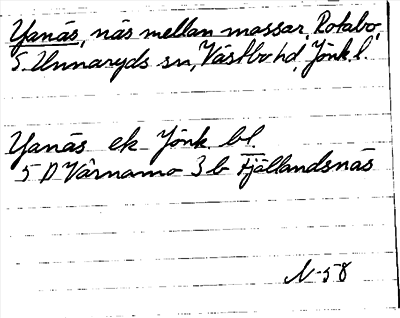 Yanäs, näs mellan mossar, Rotabo,
S. Unnaryds sn, Västbo hd, Jönk. l.
Yanäs ek Jönk. bl.
5 D Värnamo 3 b Fjällandsnäs
N-58